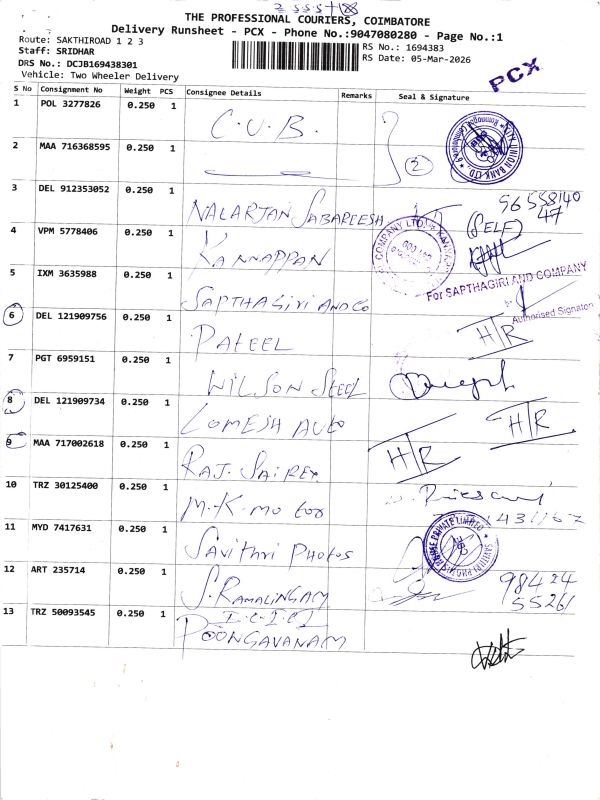 THE PROFESSIONAL COURIERS, COIMBATORE
Delivery Runsheet - PCX - Phone No.:9047080280 - Page No.:1
Route: SAKTHIROAD 1 2 3
RS No.: 1694383
Staff: SRIDHAR
RS Date: 05-Mar-2026
DRS No.: DCJB169438301
PCX
Vehicle: Two Wheeler Delivery
S No Consignment No Weight PCS Consignee Details Remarks Seal & Signature
1 POL 3277826 0.250 1 C.U.B.
CITY UNION BANK LTD
2 MAA 716368595 0.250 1 2
3 DEL 912353052 0.250 1 NALARJAN SABAREESH
(SELF)
4 VPM 5778406 0.250 1 KANNAPPAN
5 IXM 3635988 0.250 1 SAPTHAGIRI AND CO
For SAPTHAGIRI AND COMPANY
Authorised Signatory
6 DEL 121909756 0.250 1 PATEEL H/R
7 PGT 6959151 0.250 1 WILSON STEEL
8 DEL 121909734 0.250 1 LOMESH AUTO H/R
9 MAA 717002618 0.250 1 RAJ. SAIREX H/R
10 TRZ 30125400 0.250 1 M.K. MOTOR
11 MYD 7417631 0.250 1 SAVITHRI PHOTOS
12 ART 235714 0.250 1 S. RAMALINGAM
98424
55261
13 TRZ 50093545 0.250 1 I.C.I.C.I
POONGAVANAM